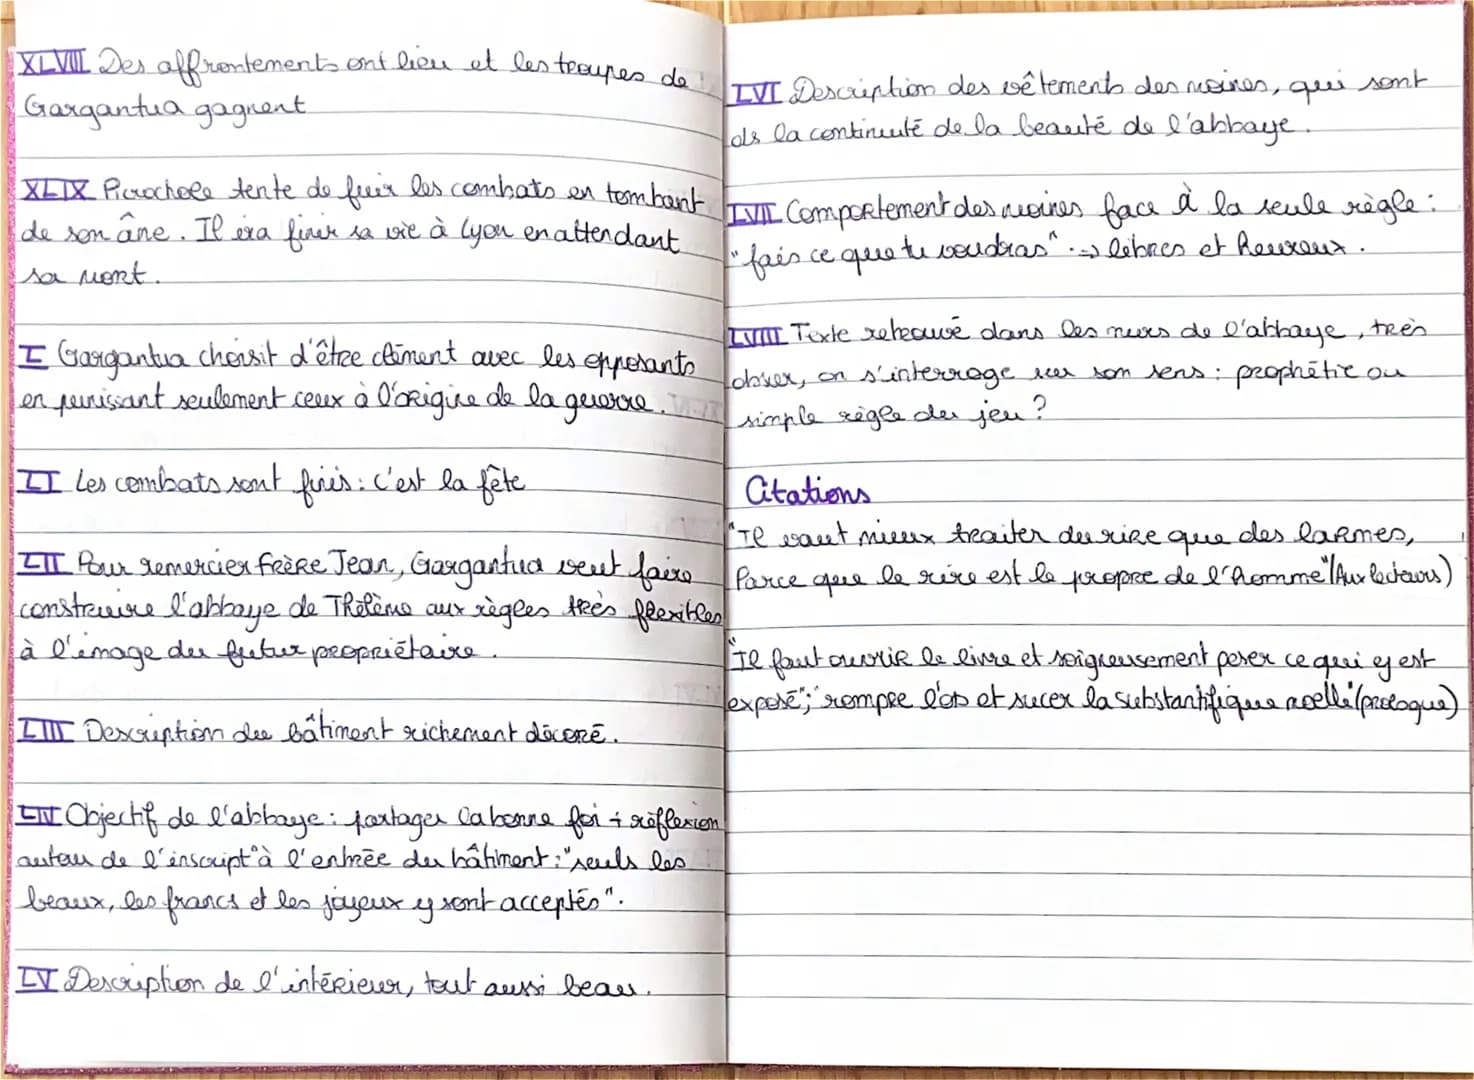 XLVIII Des affrontements ont lieu et les troupes de
Gargantua gagnent
XLIX Picrochole tente de fuir les combats en tombant
de son âne. Il ira finir sa vie à Lyon en attendant
sa mort.
L Gargantua choisit d'être clément avec les opposants
en punissant seulement ceux à l'origine de la guerre.
LI Les combats sont finis : c'est la fête
LII Pour remercier Frère Jean, Gargantua veut faire
construire l'abbaye de Thélème aux règles très flexibles
à l'image du futur propriétaire.
LIII Description du bâtiment richement décoré.
LIV Objectif de l'abbaye : partager la bonne foi + réflexion
autour de l'inscript° à l'entrée du bâtiment : "seuls les
beaux, les francs et les joyeux y sont acceptés".
LV Description de l'intérieur, tout aussi beau.
LVI Description des vêtements des moines, qui sont
ds la continuité de la beauté de l'abbaye.
LVII Comportement des moines face à la seule règle :
"fais ce que tu voudras". → libres et heureux.
LVIII Texte retrouvé dans les murs de l'abbaye, très
obscur, on s'interroge sur son sens : prophétie ou
simple règle du jeu ?
Citations
"Il vaut mieux traiter du rire que des larmes,
Parce que le rire est le propre de l'homme" (Aux lecteurs)
"Il faut ouvrir le livre et soigneusement peser ce qui y est
exposé"; "rompre l'os et sucer la substantifique moelle" (prologue)